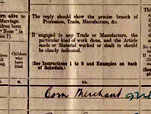 The reply should show the precise branch of
Profession, Trade, Manufacture, &c.
If engaged in any Trade or Manufacture, the
particular kind of work done, and the Article
made or Material worked or dealt in should
be clearly indicated.
(See Instructions 1 to 8 and Examples on back
of Schedule.)
Children
who
have
died.
10
Corn Merchant